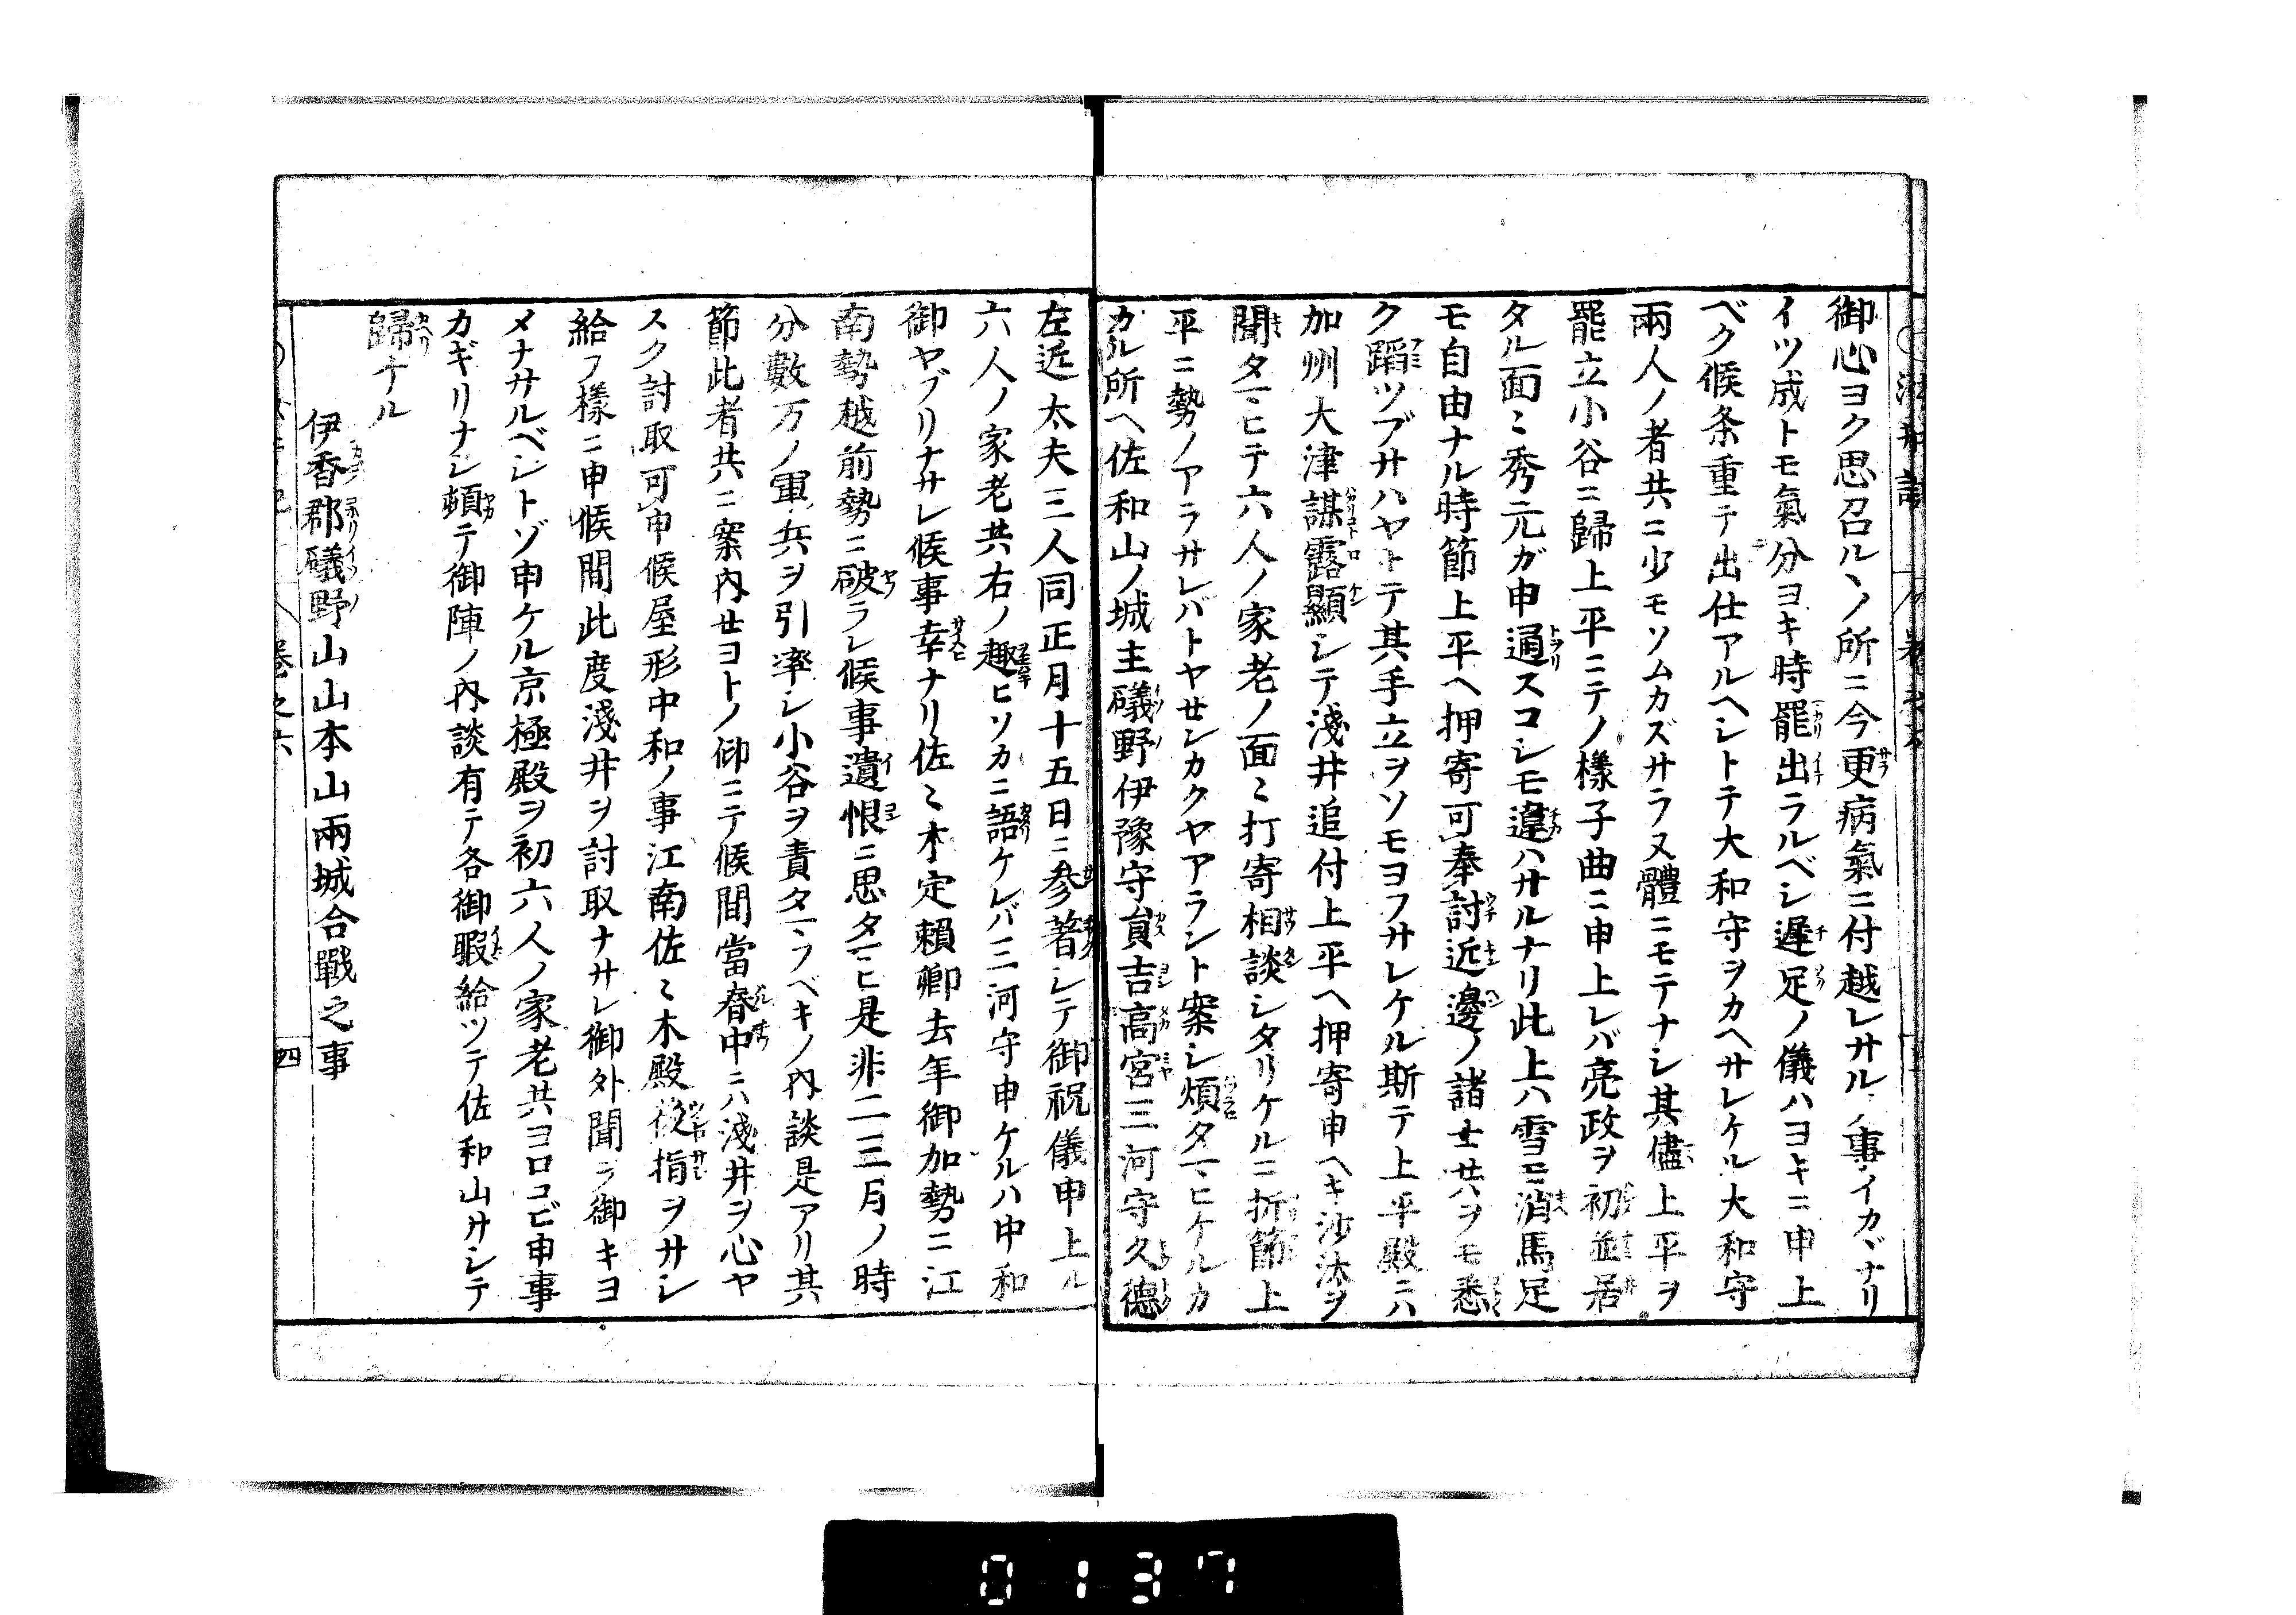 御心ヨク思召ルヽノ所ニ今更病氣ニ付越レサルノ事イカヾナリ
イツ成トモ氣分ヨキ時罷出ラルベシ遲足ノ儀ハヨキニ申上
ベク候条重テ出仕アルヘシトテ大和守ヲカヘサレケル大和守
兩人ノ者共ニ少モソムカズサラヌ體ニモテナシ其儘上平ヲ
罷立小谷ニ歸上平ニテノ樣子曲ニ申上レバ亮政ヲ初並居
タル面〻秀元ガ申通スコシモ違ハサルナリ此上ハ雪モ消馬足
モ自由ナル時節上平ヘ押寄可奉討近邊ノ諸士共ヲモ悉
ク蹈ツブサハヤトテ其手立ヲソモヨフサレケル斯テ上平殿ニハ
加州大津謀露顯シテ淺井追付上平ヘ押寄申ヘキ沙汰ヲ
聞タマヒテ六人ノ家老ノ面〻打寄相談シタリケルニ折節上
平ニ勢ノアラサレバトヤせンカクヤアラント案シ煩タマヒケルカ
カル所ヘ佐和山ノ城主礒野伊豫守員吉高宮三河守久德
左近太夫三人同正月十五日ニ参著シテ御祝儀申上ル
六人ノ家老共右ノ趣ヒソカニ語ケレバ三河守申ケルハ中和
御ヤブリナサレ候事幸ナリ佐〻木定賴卿去年御加勢ニ江
南勢越前勢ニ破ラレ候事遺恨ニ思タマヒ是非二三月ノ時
分數万ノ軍兵ヲ引率シ小谷ヲ責タマフベキノ內談是アリ其
節此者共ニ案內せヨトノ仰ニテ候間當春中ニハ淺井ヲ心ヤ
スク討取可申候屋形中和ノ事江南佐〻木殿後指ヲサシ
給フ樣ニ申候間此度淺井ヲ討取ナサレ御外聞ヲ御キヨ
メナサルベシトゾ申ケル京極殿ヲ初六人ノ家老共ヨロコビ申事
カギリナシ頓テ御陣ノ內談有テ各御暇給ツテ佐和山サシテ
歸ケル
伊香郡礒野山山本山兩城合戰之事
卷之六
四
0137